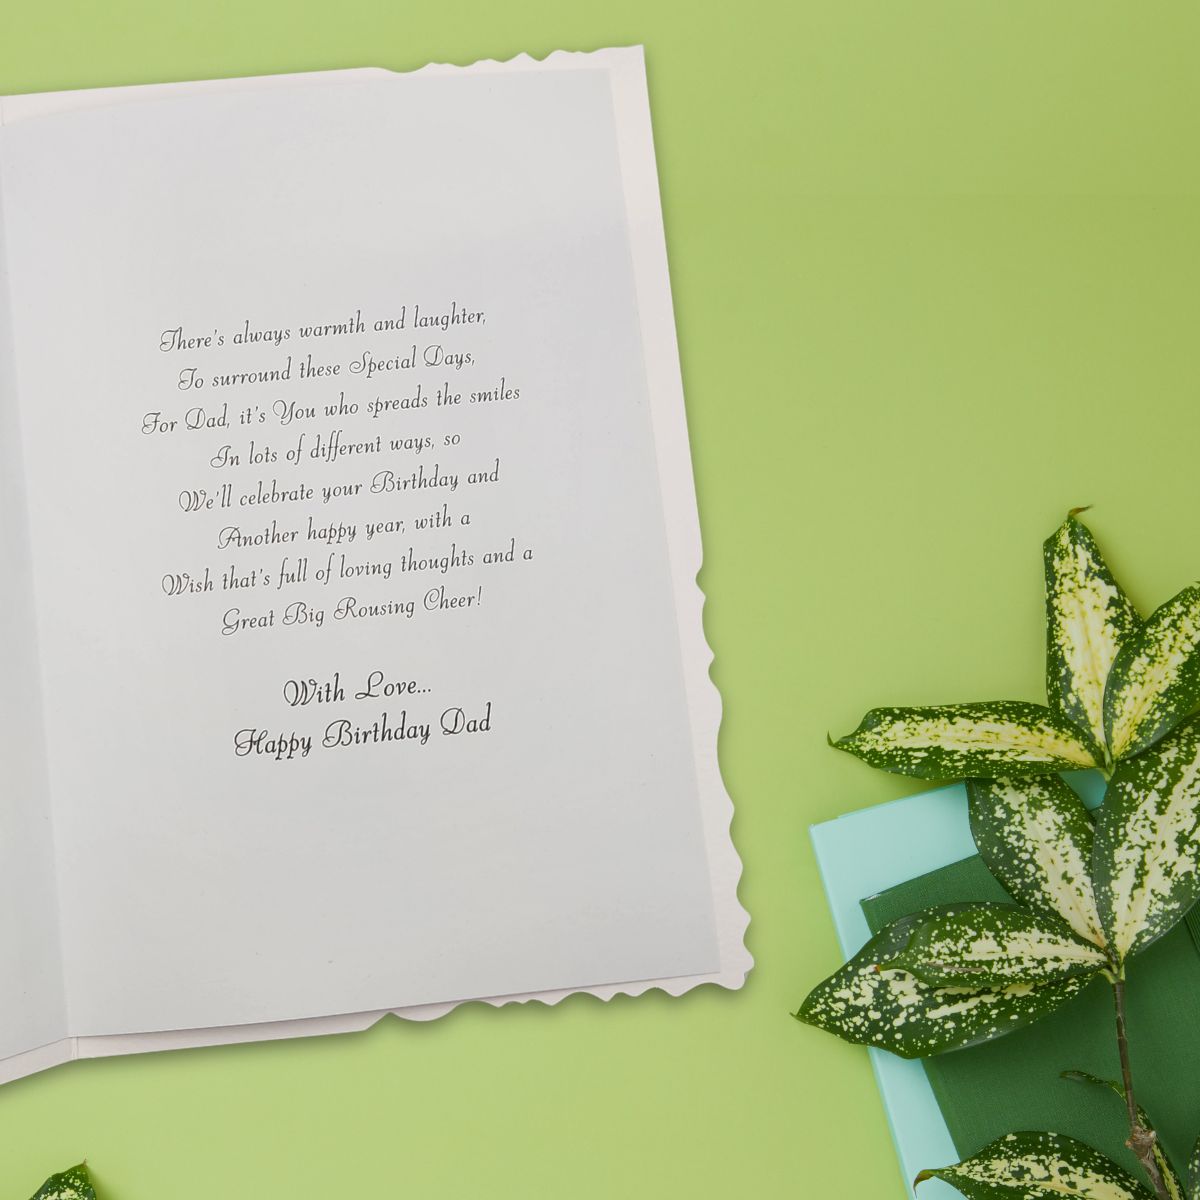 There's always warmth and laughter,
To surround these Special Days,
For Dad, it's You who spreads the smiles
In lots of different ways, so
We'll celebrate your Birthday and
Another happy year, with a
Wish that's full of loving thoughts and a
Great Big Rousing Cheer!
With Love...
Happy Birthday Dad